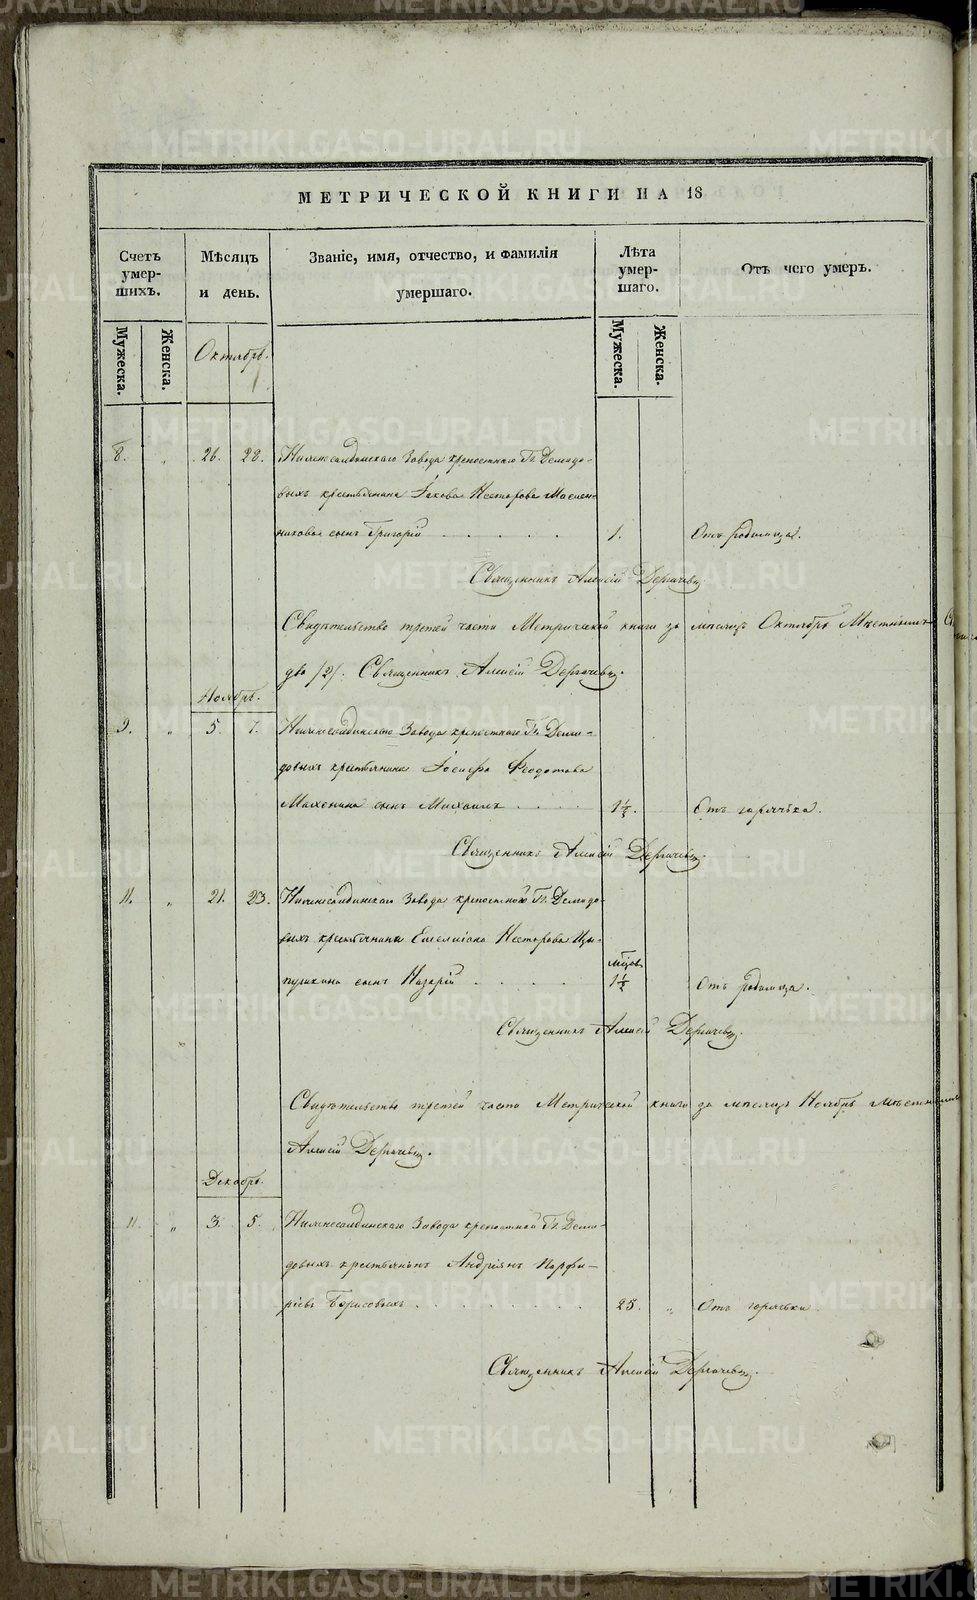 МЕТРИЧЕСКОЙ КНИГИ НА 18
Счетъ умер-шихъ.
Мѣсяцъ и день.
Званіе, имя, отчество, и фамилія умершаго.
Лѣта умер-шаго.
Отъ чего умеръ.
Мужеска.
Женска.
Мужеска.
Женска.
Октябрь.
8. „ 26. 28. Нижнесалдинскаго Завода крепостнаго Гг. Демидо-
выхъ крестьянина Іакова Несторова Маслен-
никова сынъ Григорій 1. Отъ родимца.
Священникъ Алексій Дергачевъ
Свидѣтельство третей части Метрической книги за мѣсяцъ Октябрь
два /2/. Священникъ Алексій Дергачевъ.
Ноябрь.
9. „ 5. 7. Нижнесалдинскаго Завода крепостнаго Гг. Деми-
довыхъ крестьянина Іосифа Феодотова
сынъ Михаилъ 1½. Отъ горячки.
Священникъ Алексій Дергачевъ.
11. „ 21. 23. Нижнесалдинскаго Завода крепостнаго Гг. Демидо-
выхъ крестьянина Емелиана Несторова Цы-
пушкина сынъ Назарій мѣсяц. 1½ Отъ родимца.
Священникъ Алексій Дергачевъ.
Свидѣтельство третей части Метрической книги за мѣсяцъ Ноябрь
Алексій Дергачевъ.
Декабрь.
11. „ 3. 5. Нижнесалдинскаго Завода крепостной Гг. Деми-
довыхъ крестьянинъ Андріянъ Парфи-
ріевъ Борисовыхъ 25. „ Отъ горячки.
Священникъ Алексій Дергачевъ.
METRIKI.GASO-URAL.RU